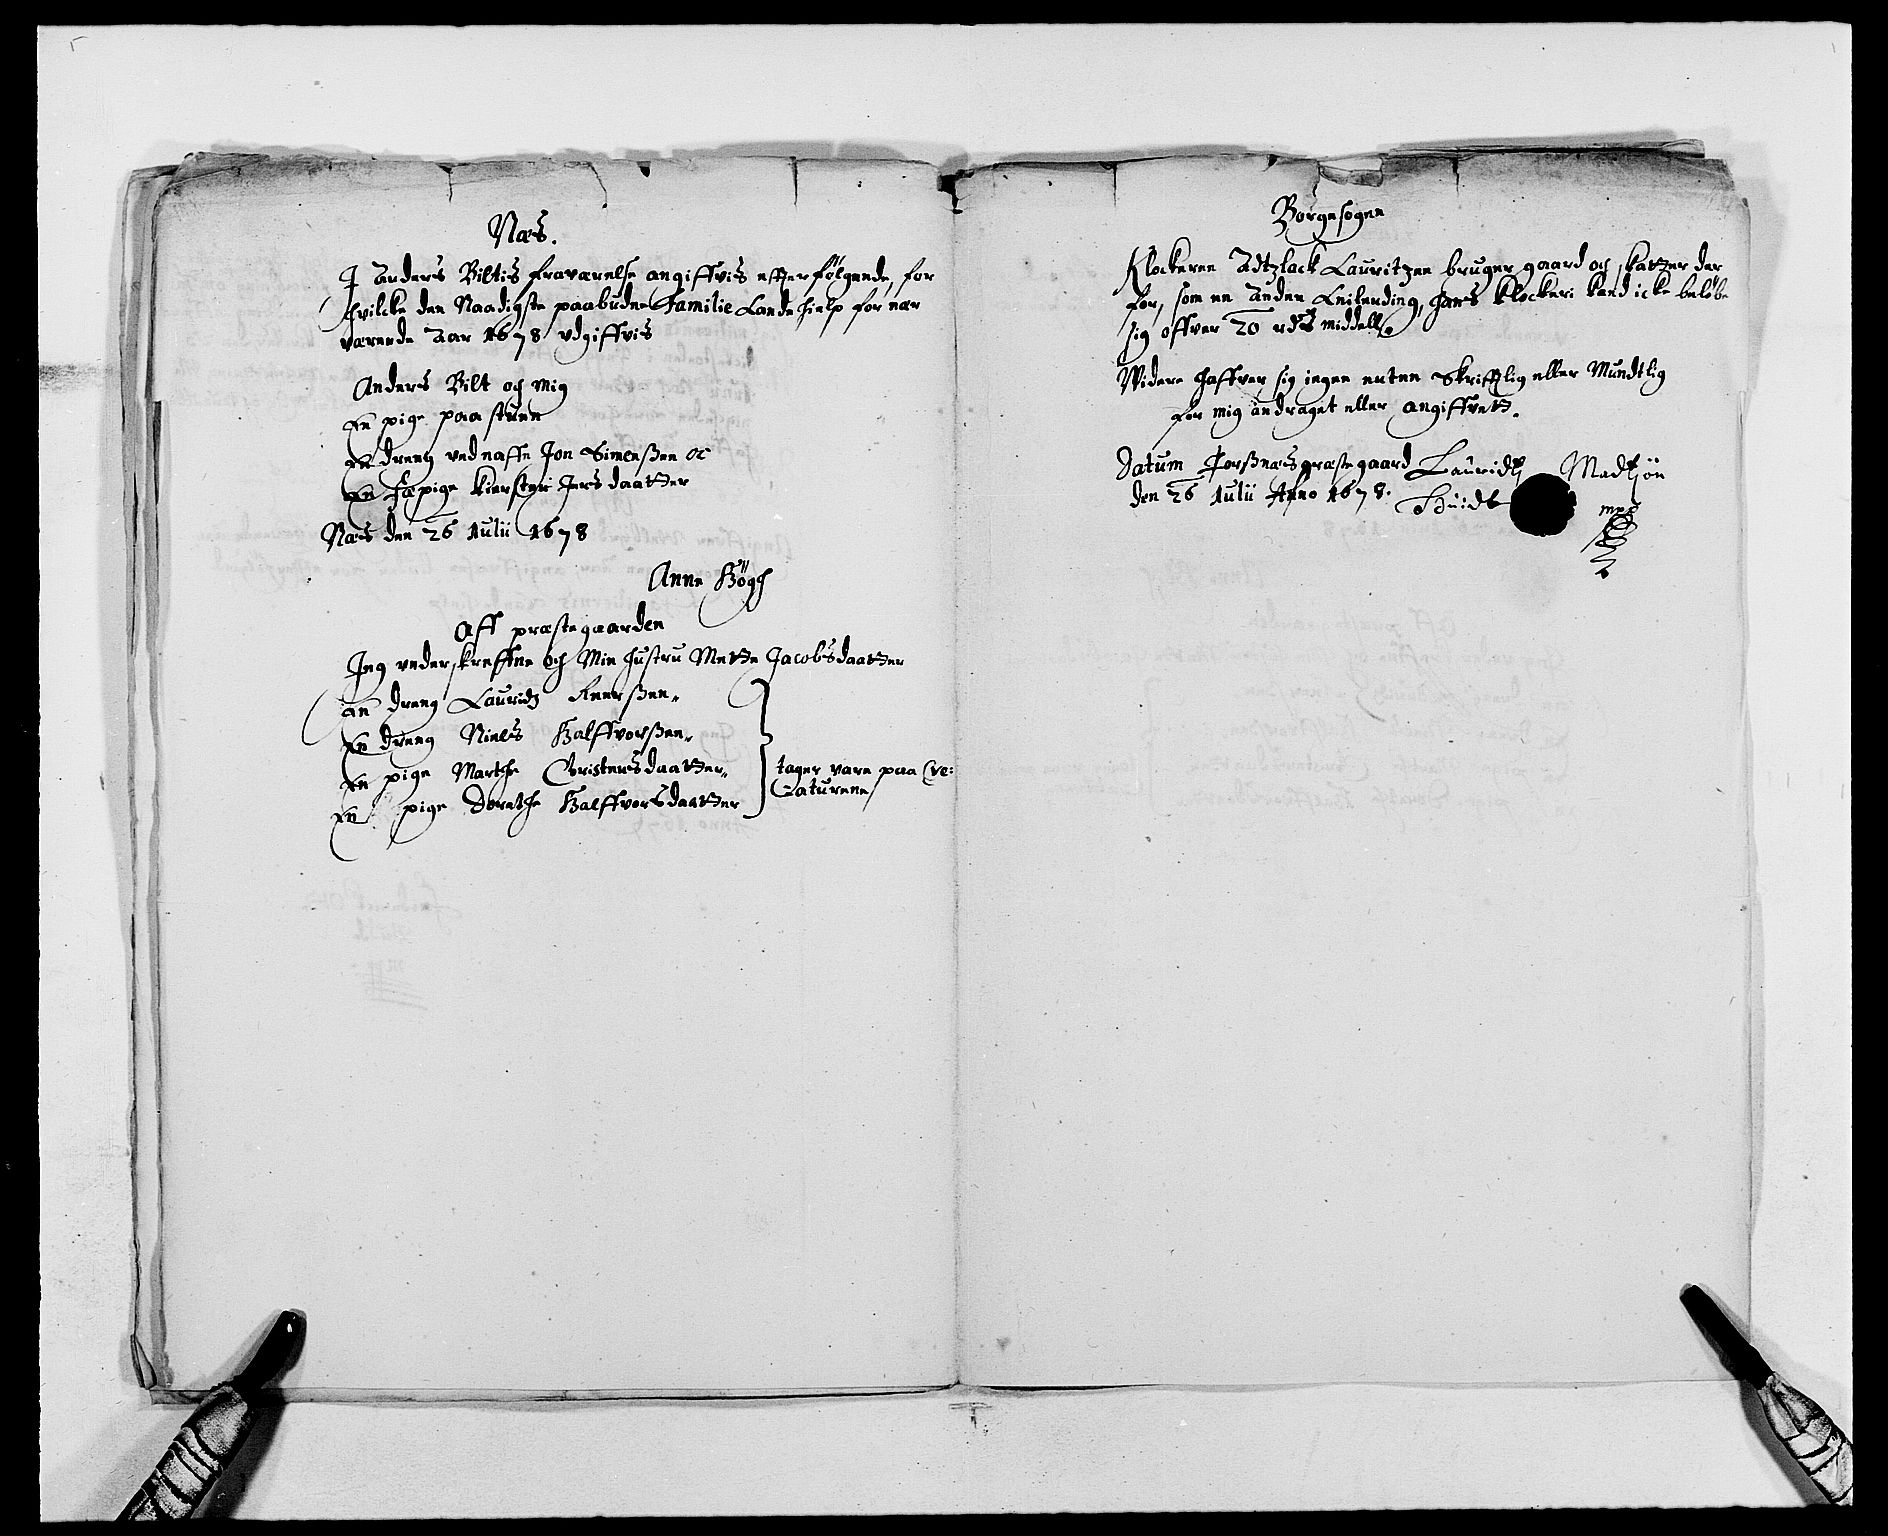 Næs.
I Anders Biltis fraværelse angiffvis effter følgende, for
hvilcke den Naadigste paabudne Familie Lande hielp for nær
værende Aar 1678 udgiffvis
Anders Bilt och Mig
En pige paa stuen
En dreng ved naffn Jon Simenßen oc
En fæpige Kiersten Jersdaatter
Næs den 26 Julii 1678
Anne Bögh
Aff præstegaarden
Jeg underskreffne och Min hustru Mette Jacobsdaatter
en dreng Lauridz
En dreng Niels Halffvorßen
En pige Marthe Christensdaatter
En pige Dorethe Halffvorsdaatter
tager vare paa Cre:
aturene
Borgesogen
Klockeren Lauritzen bruger gaard och skatter der
for, som en anden Leilending, hans klockeri kand icke beløbe
sig offver 20 rdrs middell
Widere haffver sig ingen enten Skrifftlig eller Mundtlig
for mig andraget eller angiffvett.
Datum Torßnæs præstegaard
den 26 Julii Anno 1678.
Lauridtz Madtzøn
Huidt
mpp